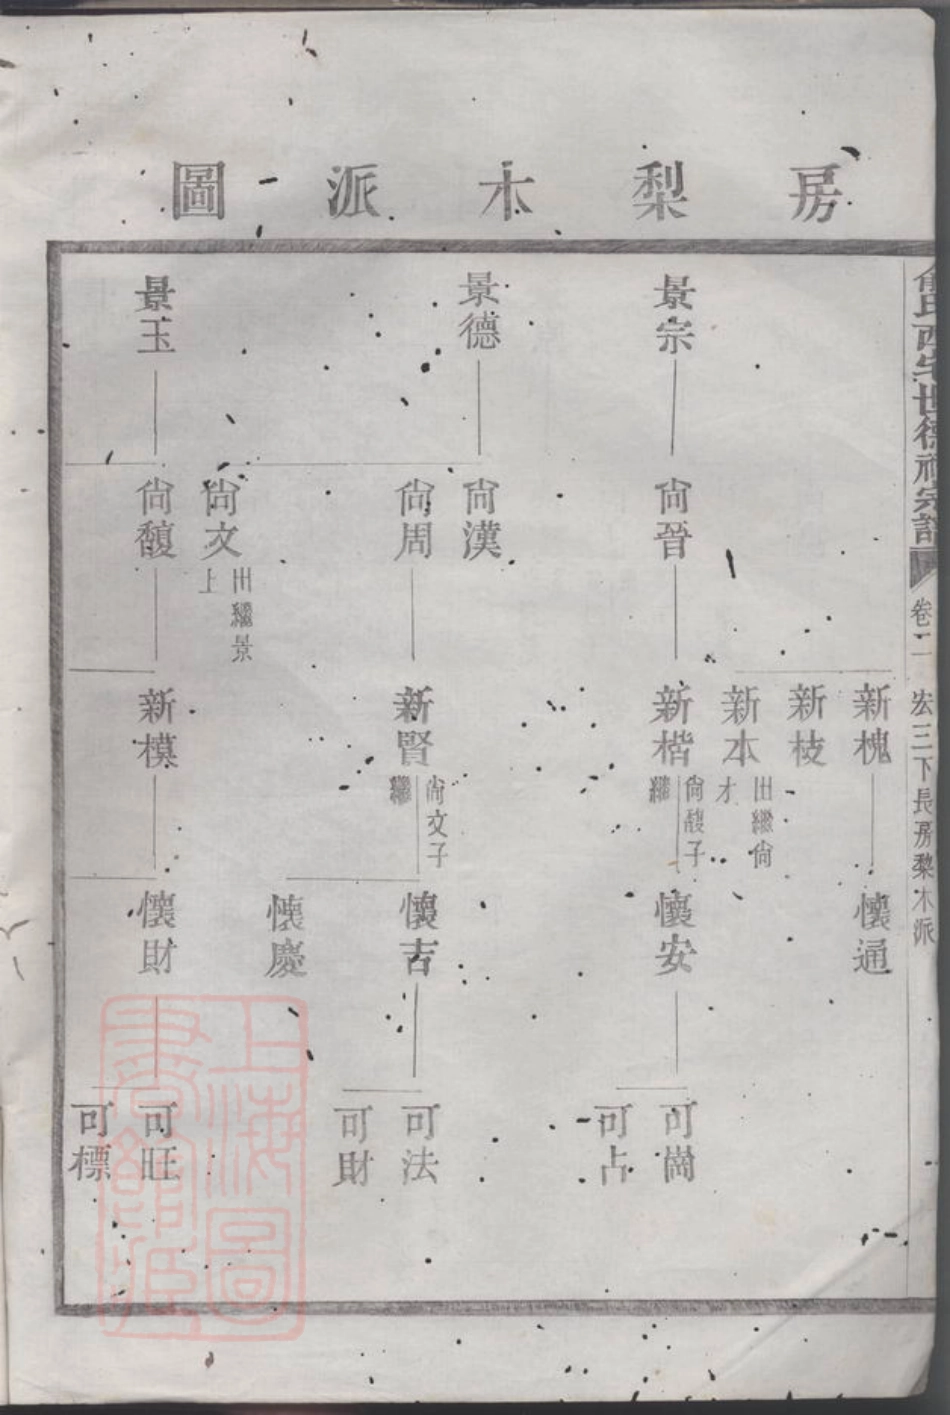 房梨木派圖
俞氏西宅世德祠宗譜
卷二
宏三下長房黎木派
景宗
景德
景玉
尙晉
尙漢
尙周
尙文
出繼景上
尙馥
新槐
新枝
新本
出繼尙才
新楷
尙馥子繼
新賢
尙文子繼
新模
懷通
懷安
懷吉
懷慶
懷財
可崗
可占
可法
可財
可旺
可標
上海圖
書館藏